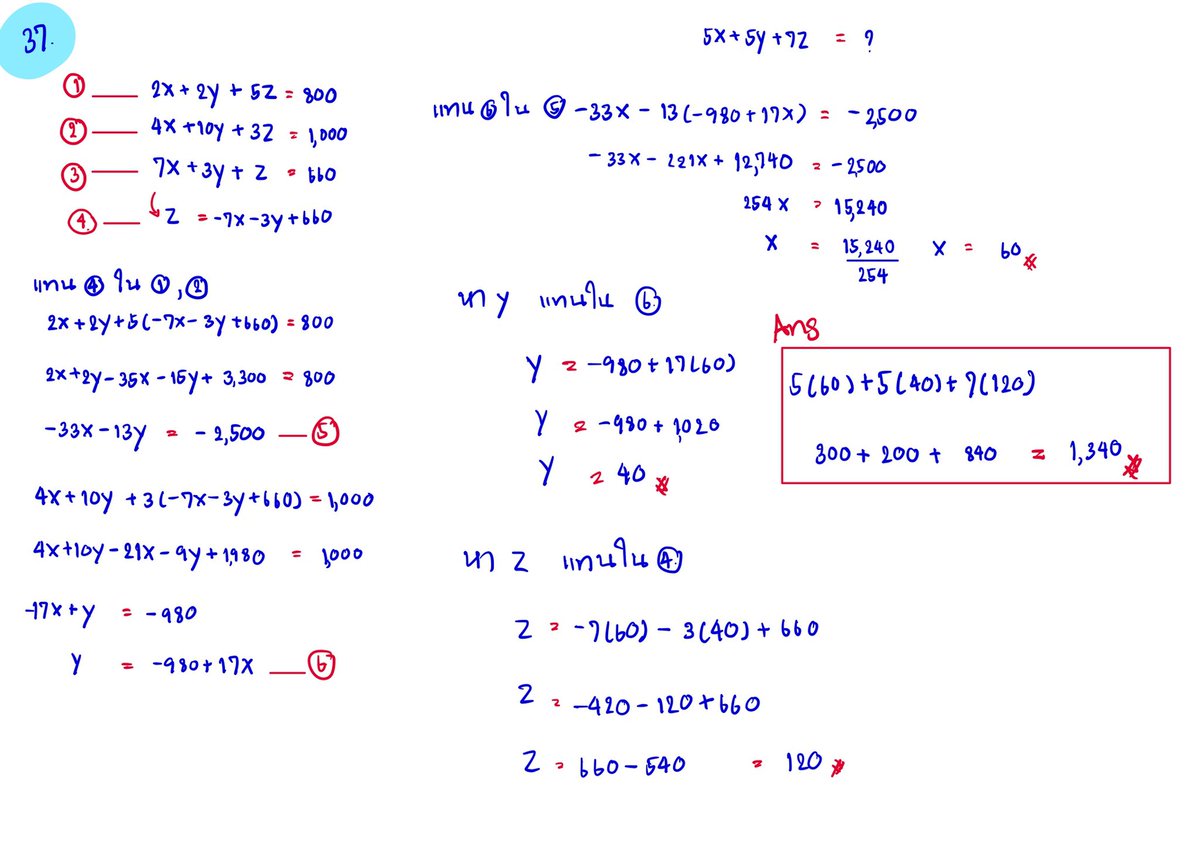 37.
① 2x + 2y + 5z = 800
② 4x + 10y + 3z = 1,000
③ 7x + 3y + z = 660
④ z = -7x - 3y + 660
แทน ④ ใน ①, ②
2x + 2y + 5(-7x - 3y + 660) = 800
2x + 2y - 35x - 15y + 3,300 = 800
-33x - 13y = -2,500 ⑤
4x + 10y + 3(-7x - 3y + 660) = 1,000
4x + 10y - 21x - 9y + 1,980 = 1,000
-17x + y = -980
y = -980 + 17x ⑥
5x + 5y + 7z = ?
แทน ⑥ ใน ⑤ -33x - 13(-980 + 17x) = -2,500
-33x - 221x + 12,740 = -2,500
254x = 15,240
x = 15,240/254 x = 60
หา y แทนใน ⑥
y = -980 + 17(60)
y = -980 + 1,020
y = 40
หา z แทนใน ④
z = -7(60) - 3(40) + 660
z = -420 - 120 + 660
z = 660 - 540 = 120
Ans
5(60) + 5(40) + 7(120)
300 + 200 + 840 = 1,340